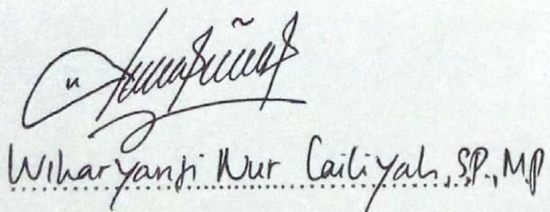 Wiharyanti Nur Lailiyah, S.P., M.P